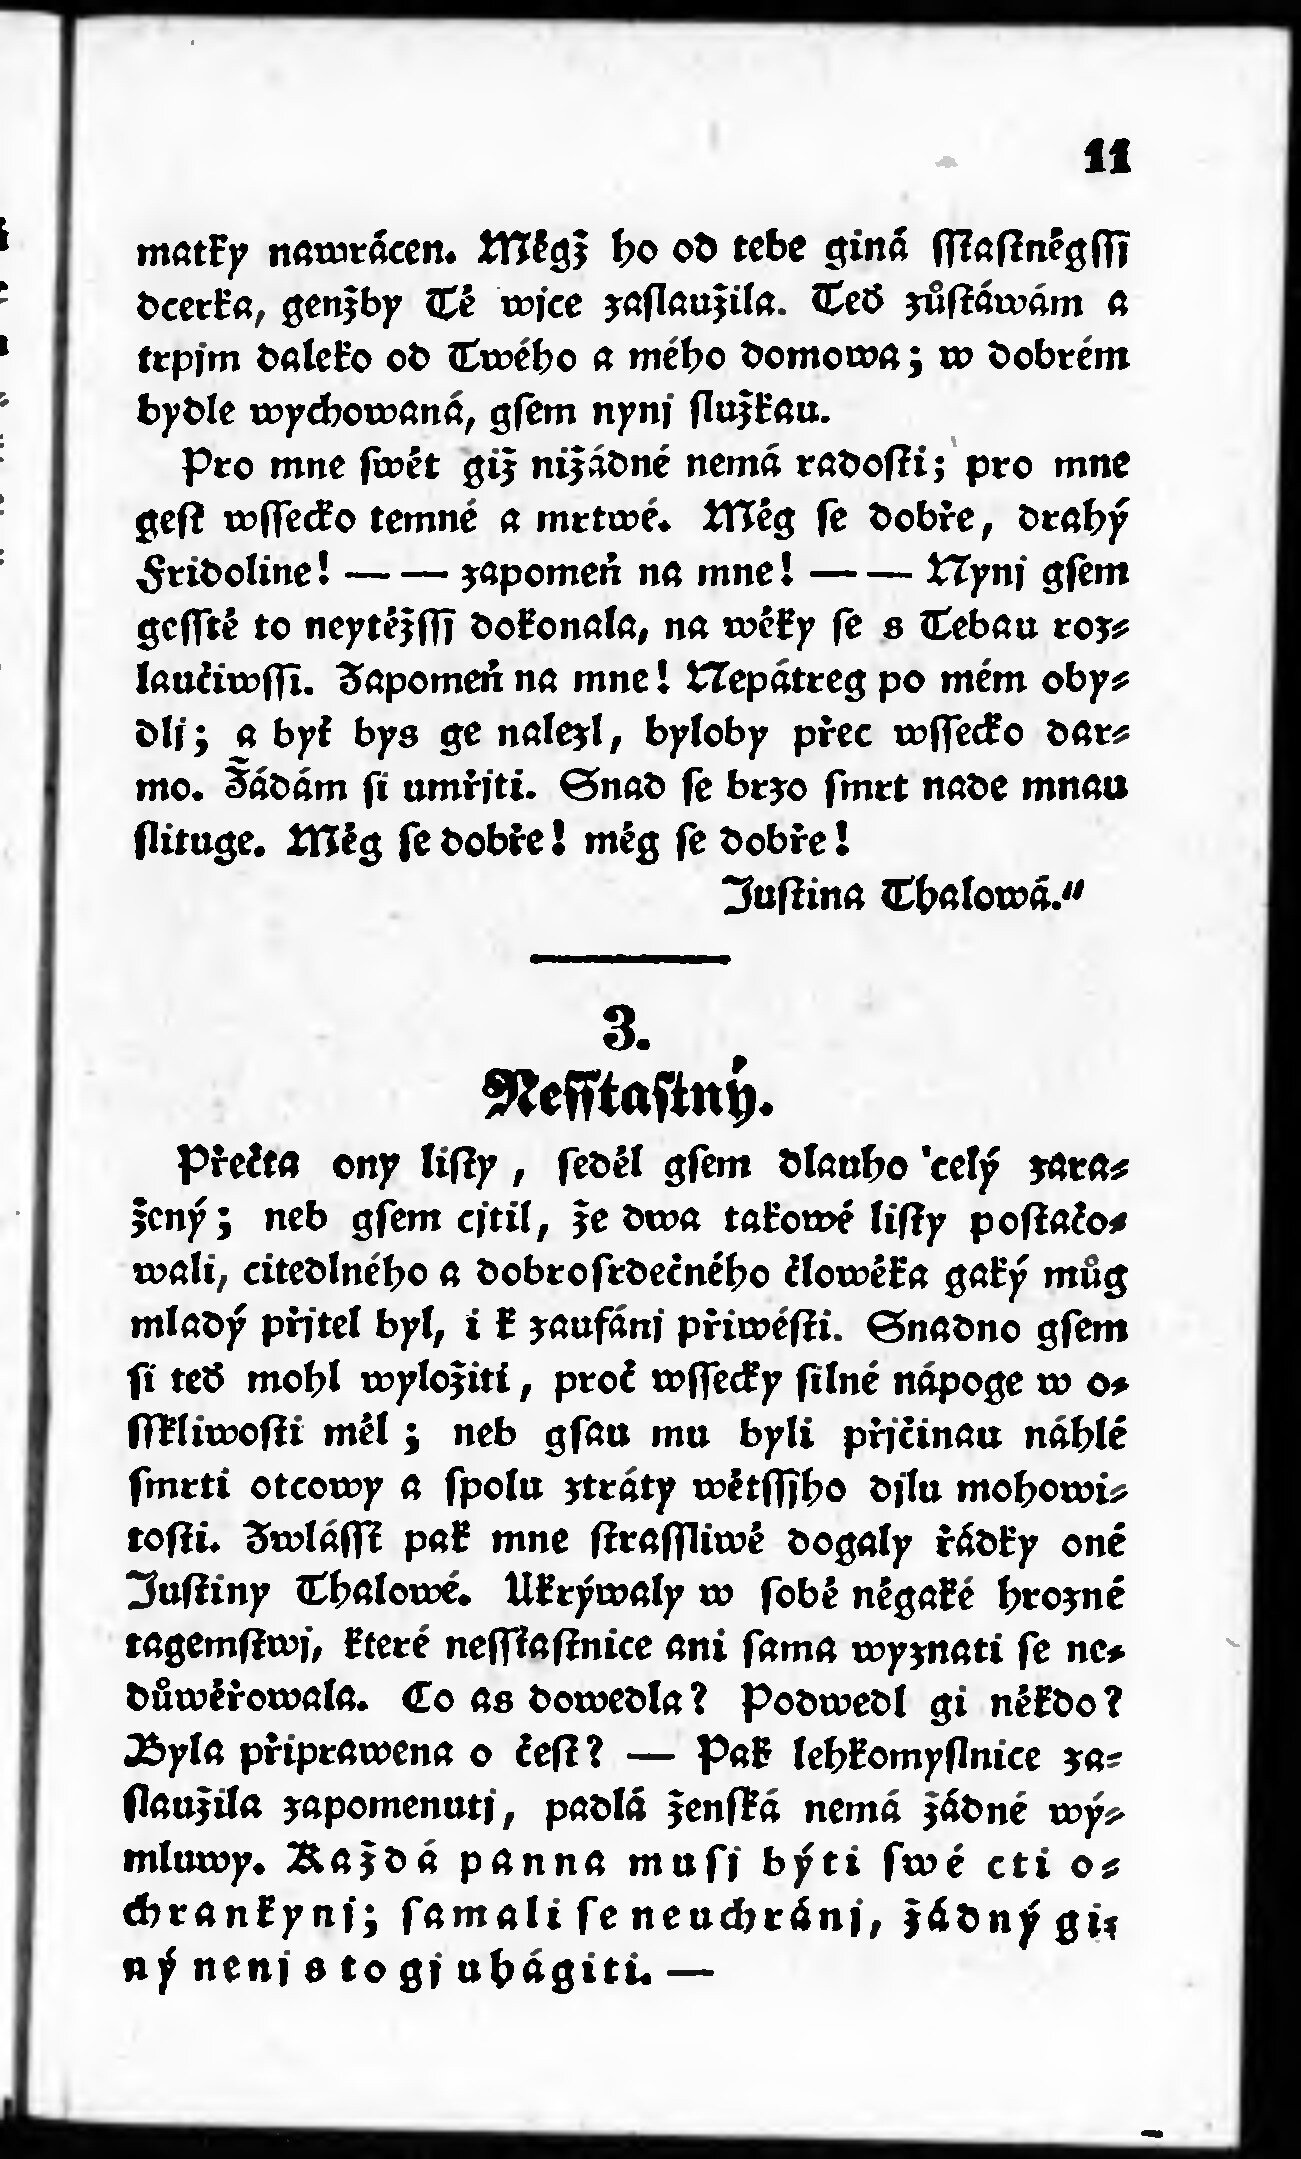 11
matky nawrácen. Měgž ho od tebe giná ſſťaſtněgſſj
dcerka, genžby Tě wjce zaſlaužila. Teď zůſtáwám a
trpjm daleko od Twého a mého domowa; w dobrém
bydle wychowaná, gſem nynj ſlužkau.
Pro mne ſwět giž nižádné nemá radoſti; pro mne
geſt wſſecko temné a mrtwé. Měg ſe dobře, drahý
Fridoline! — — zapomeň na mne! — — Nynj gſem
geſſtě to neytěžſſj dokonala, na wěky ſe s Tebau roz⸗
laučiwſſi. Zapomeň na mne! Nepátreg po mém oby⸗
dlj; a byť bys ge nalezl, byloby přec wſſecko dar⸗
mo. Žádám ſi umřjti. Snad ſe brzo ſmrt nade mnau
ſlituge. Měg ſe dobře! měg ſe dobře!
Juſtina Thalowá.“
3.
Neſſtaſtný.
Přečta ony liſty, ſeděl gſem dlauho celý zara⸗
žený; neb gſem cjtil, že dwa takowé liſty poſtačo⸗
wali, citedlného a dobroſrdečného člowěka gaký můg
mladý přjtel byl, i k zaufánj přiwéſti. Snadno gſem
ſi teď mohl wyložiti, proč wſſecky ſilné nápoge w o⸗
ſſkliwoſti měl; neb gſau mu byli přjčinau náhlé
ſmrti otcowy a ſpolu ztráty wětſſjho djlu mohowi⸗
toſti. Zwláſſť pak mne ſtraſſliwě dogaly řádky oné
Juſtiny Thalowé. Ukrýwaly w ſobě něgaké hrozné
tagemſtwj, které neſſťaſtnice ani ſama wyznati ſe ne⸗
důwěřowala. Co as dowedla? Podwedl gi někdo?
Byla připrawena o čeſt? — Pak lehkomyſlnice za⸗
ſlaužila zapomenutj, padlá ženſká nemá žádné wý⸗
mluwy. Každá panna muſj býti ſwé cti o⸗
chrankynj; ſamali ſe neuchránj, žádný gi⸗
ný nenj s to gj uhágiti. —